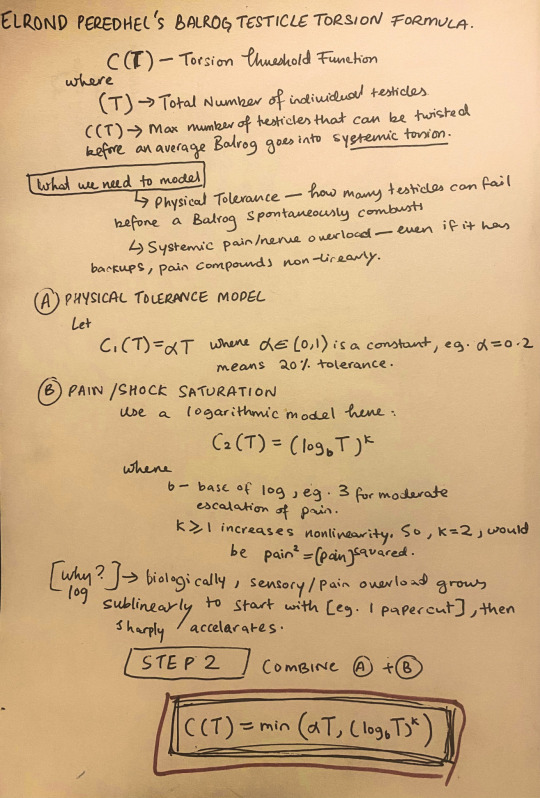 ELROND PEREDHEL'S BALROG TESTICLE TORSION FORMULA.
C(T) – Torsion Threshold Function
where
(T) → Total Number of individual testicles
C(T) → Max number of testicles that can be twisted
before an average Balrog goes into systemic torsion.
What we need to model
↳ Physical Tolerance — how many testicles can fail
before a Balrog spontaneously combusts
↳ Systemic pain/nerve overload — even if it has
backups, pain compounds non-linearly.
(A) PHYSICAL TOLERANCE MODEL
Let
C₁(T) = αT where α ∈ (0,1) is a constant, eg. α = 0.2
means 20% tolerance.
(B) PAIN / SHOCK SATURATION
Use a logarithmic model here:
C₂(T) = (log_b T)^k
where
b – base of log, eg. 3 for moderate
escalation of pain.
k ≥ 1 increases nonlinearity. So, k=2, would
be pain² = (pain)squared.
[Why?] → biologically, sensory/pain overload grows
log
sublinearly to start with [eg. 1 papercut], then
sharply / accelarates.
STEP 2 COMBINE (A) + (B)
C(T) = min (αT, (log_b T)^k)